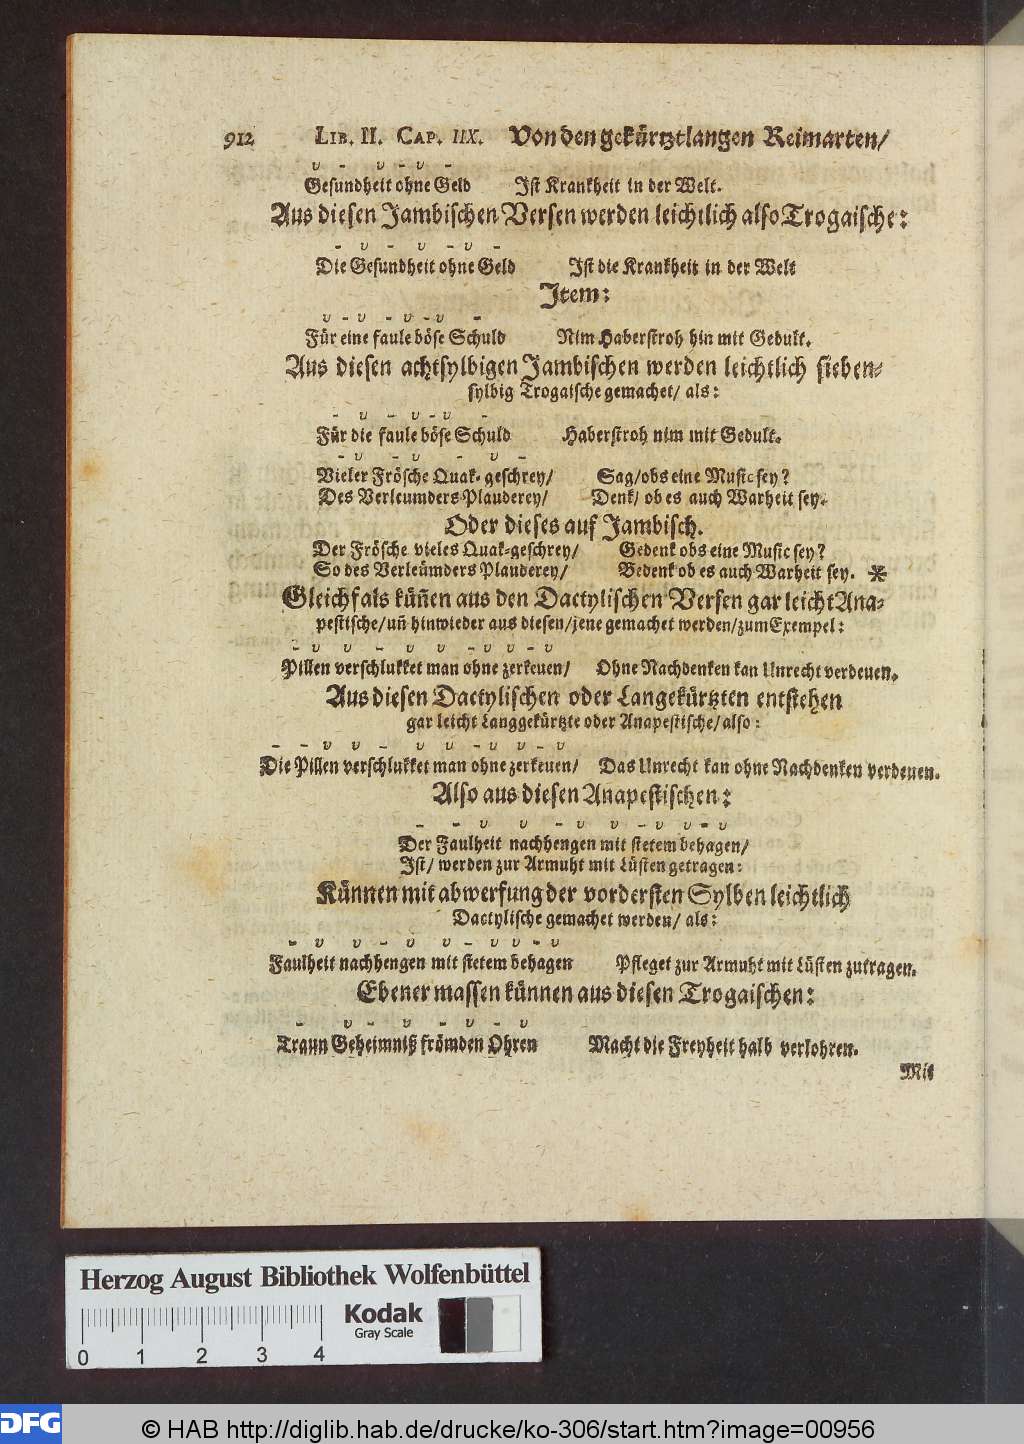 912 LIB. II. CAP. IIX. Von den gekürtztlangen Reimarten/
υ - υ - υ -
Gesundheit ohne Geld Ist Krankheit in der Welt.
Aus diesen Jambischen Versen werden leichtlich also Trogaische:
- υ - υ - υ -
Die Gesundheit ohne Geld Ist die Krankheit in der Welt
Item:
υ - υ - υ - υ -
Für eine faule böse Schuld Nim Haberstroh hin mit Gedult.
Aus diesen achtsylbigen Jambischen werden leichtlich sieben-
sylbig Trogaische gemachet/ als:
- υ - υ - υ -
Für die faule böse Schuld Haberstroh nim mit Gedult.
- υ - υ - υ -
Vieler Frösche Quak-geschrey/ Sag/obs eine Music sey?
Des Verleumders Plauderey/ Denk/ ob es auch Warheit sey.
Oder dieses auf Jambisch.
Der Frösche vieles Quak-geschrey/ Gedenk obs eine Music sey?
So des Verleümders Plauderey/ Bedenk ob es auch Warheit sey. *
Gleichfals küñen aus den Dactylischen Versen gar leicht Ana-
pestische/uñ hinwieder aus diesen/jene gemachet werden/zum Exempel:
- υ υ - υ υ - υ υ - υ
Pillen verschlukket man ohne zerkeuen/ Ohne Nachdenken kan Unrecht verdeuen.
Aus diesen Dactylischen oder Langekürtzten entstehen
gar leicht Langgekürtzte oder Anapestische/also:
- - υ υ - υ υ - υ υ - υ
Die Pillen verschlukket man ohne zerkeuen/ Das Unrecht kan ohne Nachdenken verdeuen.
Also aus diesen Anapestischen:
- - υ υ - υ υ - υ υ - υ
Der Faulheit nachhengen mit stetem behagen/
Ist/ werden zur Armuht mit Lüsten getragen:
Künnen mit abwerfung der vordersten Sylben leichtlich
Dactylische gemachet werden/ als:
- υ υ - υ υ - υ υ - υ
Faulheit nachhengen mit stetem behagen Pfleget zur Armuht mit Lüsten zutragen.
Ebener massen künnen aus diesen Trogaischen:
- υ - υ - υ - υ
Traun Geheimniß frömden Ohren Macht die Freyheit halb verlohren.
Mit
Herzog August Bibliothek Wolfenbüttel
Kodak
Gray Scale
0 1 2 3 4
DFG © HAB http://diglib.hab.de/drucke/ko-306/start.htm?image=00956